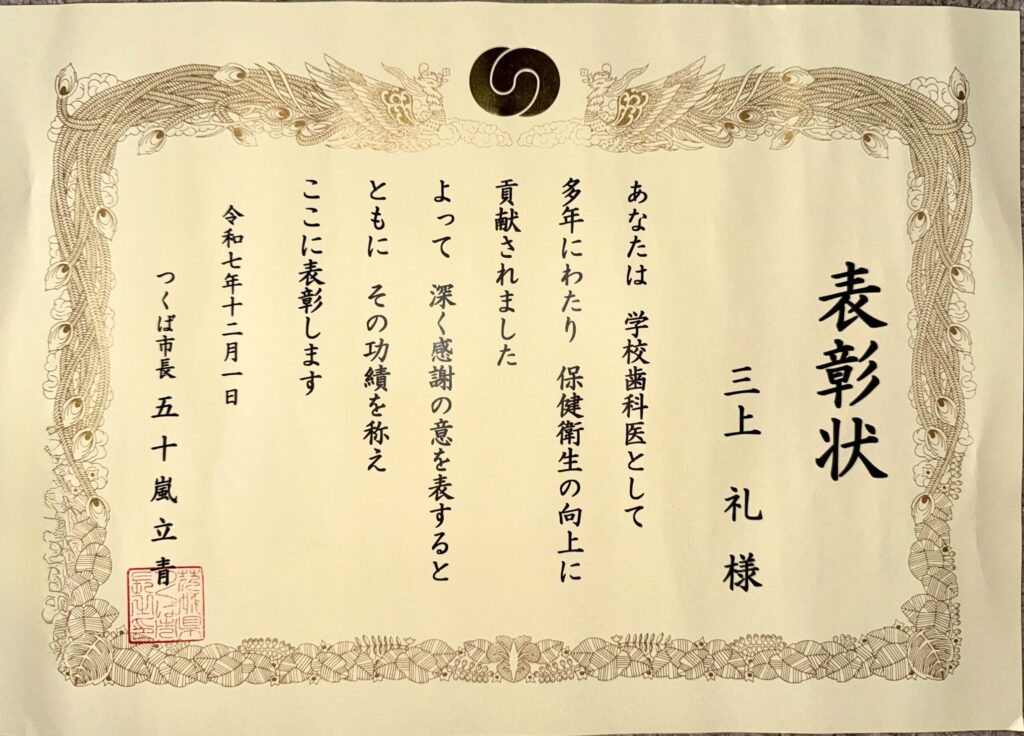 表彰状
三上 礼 様
あなたは 学校歯科医として
多年にわたり 保健衛生の向上に
貢献されました
よって 深く感謝の意を表すると
ともに その功績を称え
ここに表彰します
令和七年十二月一日
つくば市長 五十嵐立青
茨城県つくば市長之印